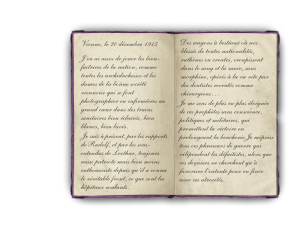 Vienne, le 20 décembre 1915
J'en ai assez de jouer les bien-
faitrices de la nation, comme
toutes les archiduchesses et les
dames de la bonne société
viennoise qui se font
photographier en infirmières au
grand cœur dans des trains
sanitaires bien éclairés, bien
blancs, bien lavés.
Je sais à présent, par les rapports
de Rudolf, et par les sous-
entendus de Lothar, toujours
aussi patriote mais bien moins
enthousiaste depuis qu'il a connu
le véritable front, ce que sont les
hôpitaux roulants.
Des wagons à bestiaux où nos
blessés de toutes nationalités,
enchaînés ou croates, croupissent
dans le sang et la sanie, sans
morphine, opérés à la va vite par
des dentistes recrutés comme
chirurgiens.
Je me sens de plus en plus éloignée
de ces prophètes sans conscience,
politiques et militaires, qui
promettent la victoire en
prolongeant la boucherie. Je méprise
tous ces planqueurs de guerre qui
vilipendent les défaitistes, alors que
ces derniers ne cherchent qu'à
favoriser l'entente pour en finir
avec ces atrocités.